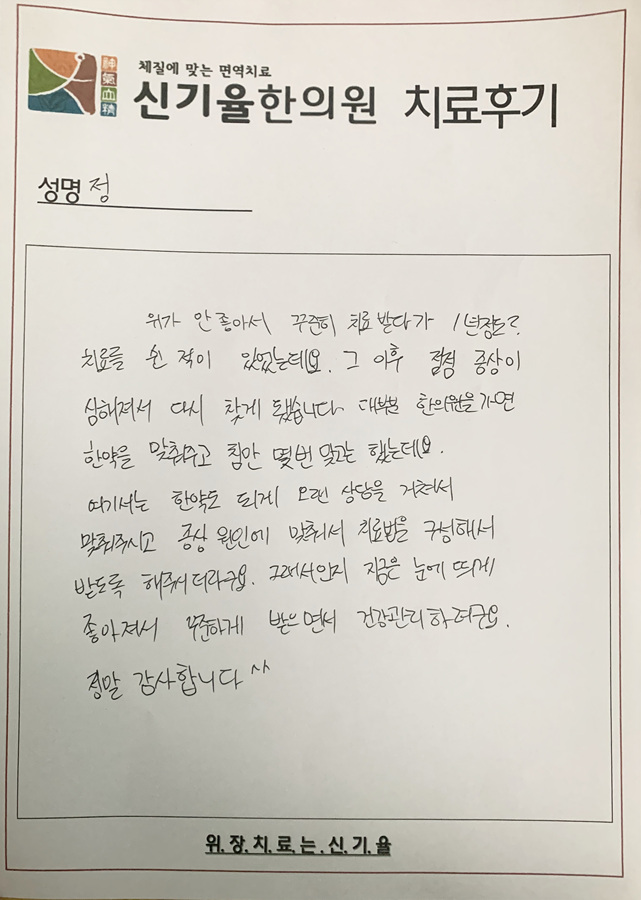 체질에 맞는 면역치료
神氣血精
신기율한의원 치료후기
성명 정
위가 안 좋아서 꾸준히 치료 받다가 1년정도?
치료를 쉰 적이 있었는데요. 그 이후 점점 증상이
심해져서 다시 찾게 됐습니다 대부분 한의원을 가면
한약을 맞춰주고 침만 몇번 맞고는 했는데요.
여기서는 한약도 되게 오랜 상담을 거쳐서
맞춰주시고 증상 원인에 맞춰서 치료법을 구성해서
받도록 해주시더라구요. 그래서인지 지금은 눈에 띄게
좋아져서 꾸준하게 받으면서 건강관리하려구요.
정말 감사합니다 ^^
위.장.치.료.는.신.기.율